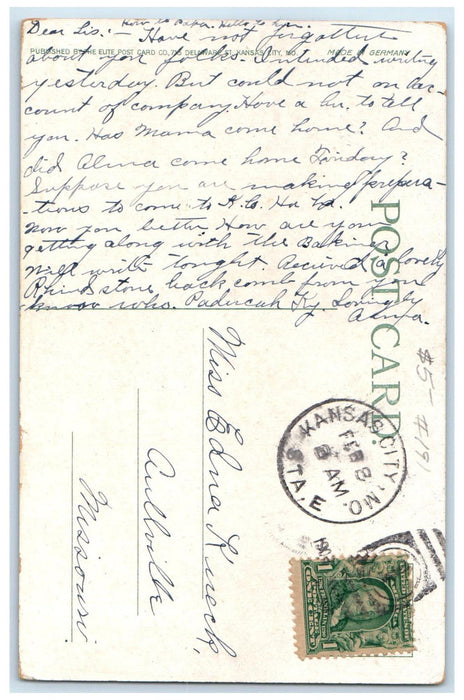 How is Papa. Hello to Lyn.
Dear Sis:- Have not forgotten
PUBLISHED BY THE ELITE POST CARD CO., 716 DELAWARE ST. KANSAS CITY, MO. MADE IN GERMANY
about you folks. Intended writing
yesterday. But could not on ac-
count of company. Have a lu. to tell
you. Has Mama come home? And
did Alma come home Friday?
Suppose you are making prepera-
tions to come to K.C. Ha
Now you better. How are you
getting along with the Baking
Will write tonight. Recieved a lovely
Rhinestone back comb from you
know who. Paducah Ky. Lovingly
POST CARD.
$5- #191
Miss Edna Kueck,
Aullville
Missouri.
KANSAS CITY, MO.
STA. E
FEB 8
8 AM
1